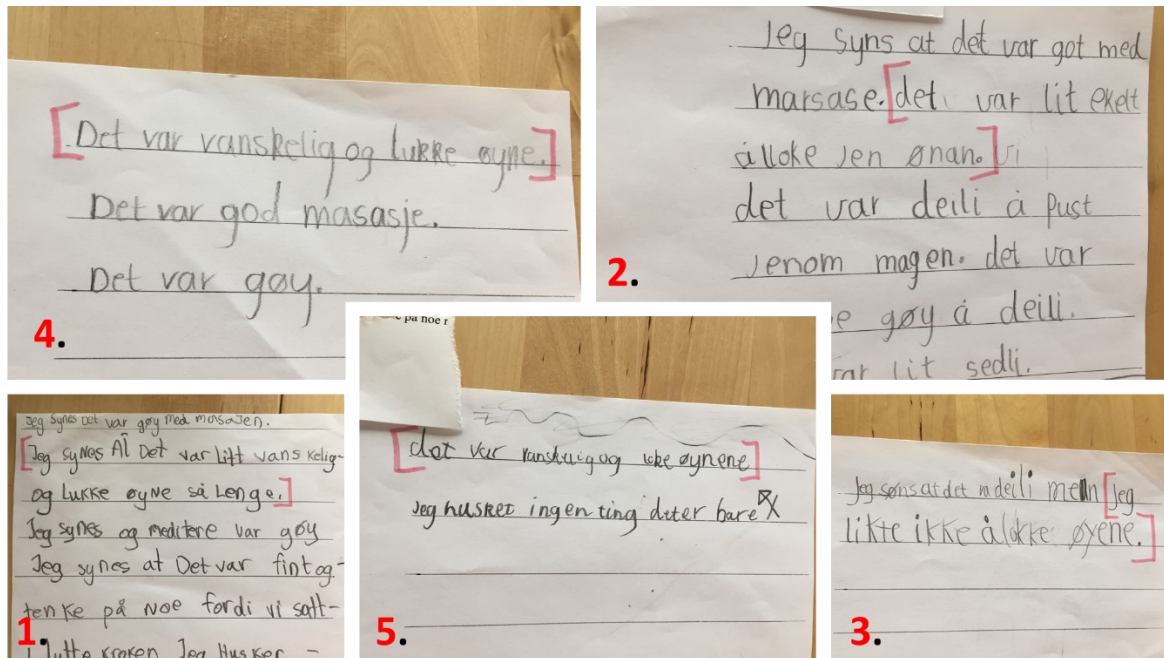 [Det var vanskelig og lukke øyne.]
Det var god masasje.
Det var gøy.
4.
Jeg syns at det var got med
marsase. [det var lit ekelt
å lloke jen ønan.] Vi
det var deili å pust
jenom magen. det var
e gøy å deili.
var lit sedli.
2.
Jeg synes Det var gøy med masajen.
[Jeg synes AT Det var litt vanskelig-
og lukke øyne så lenge.]
Jeg synes og meditere var gøy
Jeg synes at Det var fint og-
tenke på noe fordi vi satt-
lutte kroken Jeg Husker -
1.
e på noe r
[det var vanskuig og uke øynene]
Jeg husket ingen ting diter bare
5.
Jeg søns at det va deili men [Jeg
likte ikke å lokke øyene.]
3.